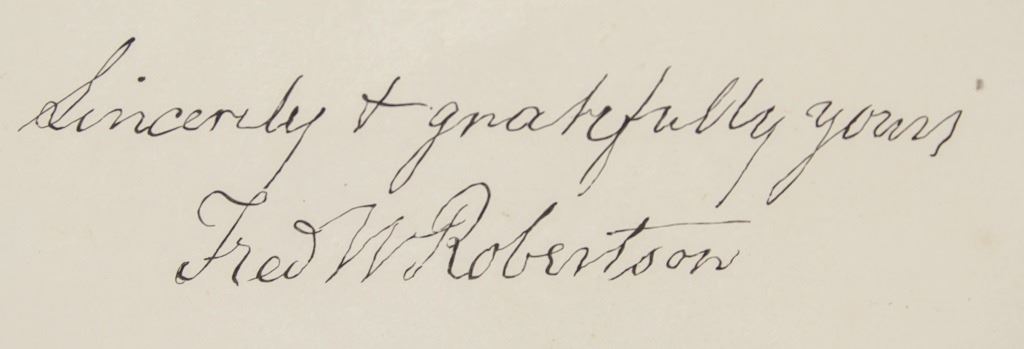 Sincerely + gratefully yours
Fred W Robertson